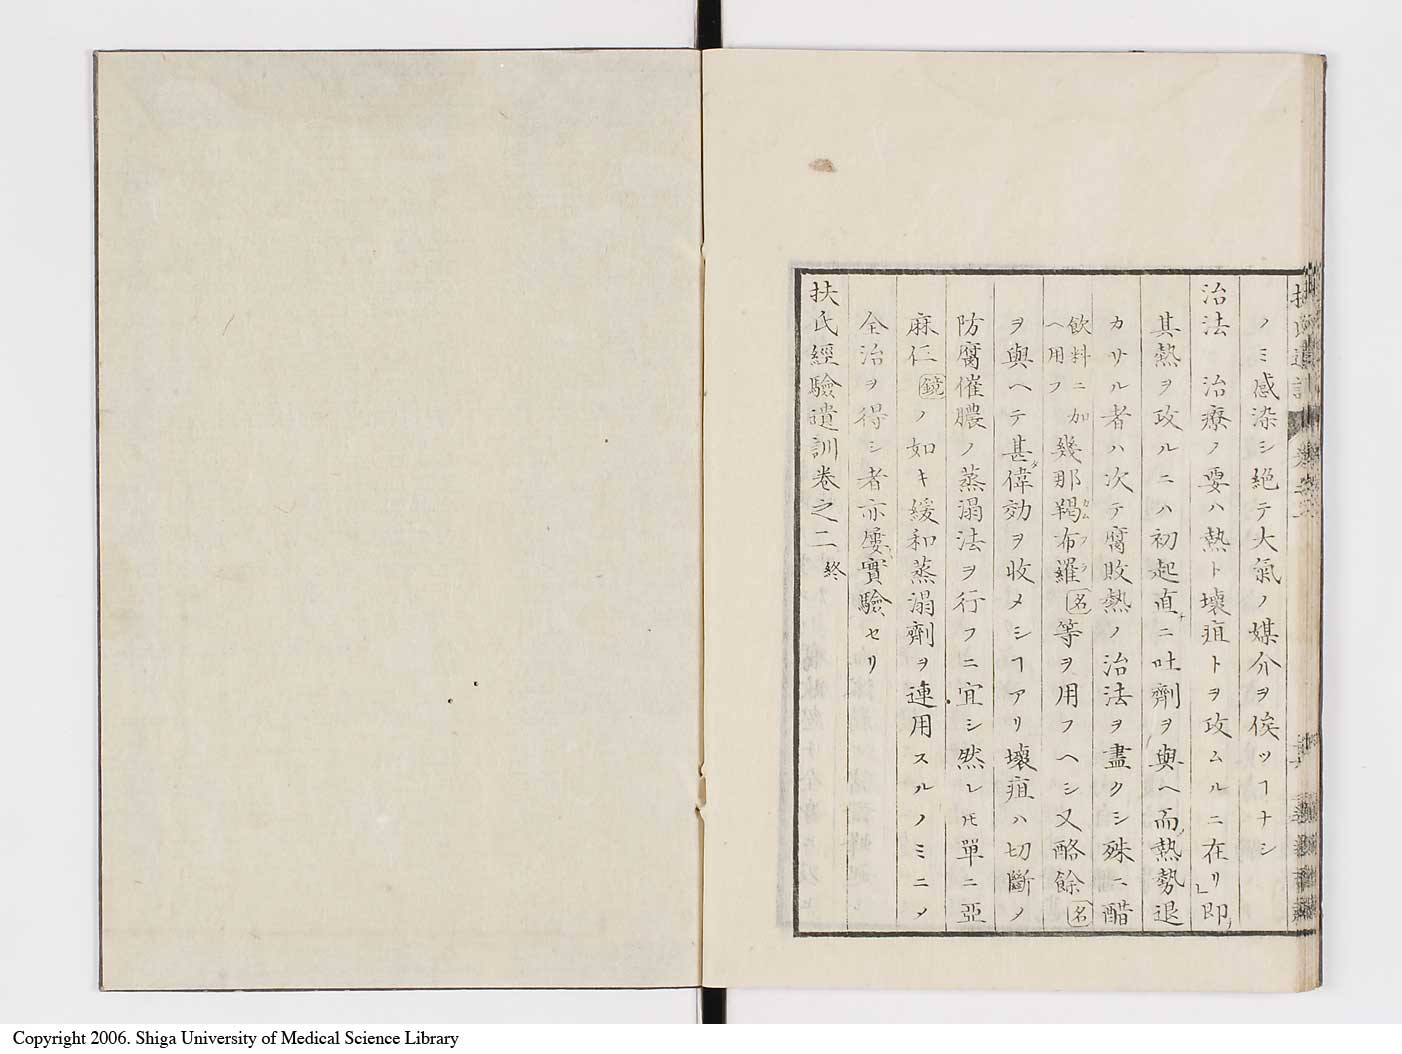 ノミ感染シ絶テ大氣ノ媒介ヲ俟ツヿナシ
治法　治療ノ要ハ熱ト壞疽トヲ攻ムルニ在リ」即チ
其熱ヲ攻ルニハ初起直ニ吐劑ヲ與ヘ而熱勢退
カサル者ハ次テ腐敗熱ノ治法ヲ盡クシ殊ニ醋
飲料ニ加ヘ用フ幾那羯布羅名等ヲ用フヘシ又酪餘名
ヲ與ヘテ甚タ偉効ヲ收メシヿアリ壞疽ハ切斷ノ
防腐催膿ノ蒸溻法ヲ行フニ宜シ然レ𪜈單ニ亞
麻仁鏡ノ如キ緩和蒸溻劑ヲ連用スルノミニメ
全治ヲ得シ者亦屡實驗セリ
扶氏經驗遺訓卷之二終
Copyright 2006. Shiga University of Medical Science Library